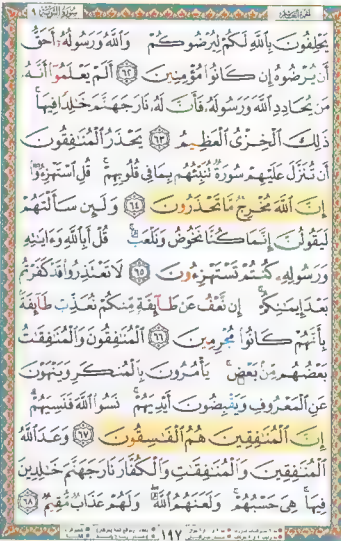 سُورَةُ التَّوْبَةِ ٩
يَحْلِفُونَ بِاللَّهِ لَكُمْ لِيُرْضُوكُمْ وَاللَّهُ وَرَسُولُهُ أَحَقُّ
أَن يُرْضُوهُ إِن كَانُوا مُؤْمِنِينَ ٦٢ أَلَمْ يَعْلَمُوا أَنَّهُ
مَن يُحَادِدِ اللَّهَ وَرَسُولَهُ فَأَنَّ لَهُ نَارَ جَهَنَّمَ خَالِدًا فِيهَا
ذَٰلِكَ الْخِزْيُ الْعَظِيمُ ٦٣ يَحْذَرُ الْمُنَافِقُونَ
أَن تُنَزَّلَ عَلَيْهِمْ سُورَةٌ تُنَبِّئُهُم بِمَا فِي قُلُوبِهِمْ قُلِ اسْتَهْزِءُوا
إِنَّ اللَّهَ مُخْرِجٌ مَّا تَحْذَرُونَ ٦٤ وَلَئِن سَأَلْتَهُمْ
لَيَقُولُنَّ إِنَّمَا كُنَّا نَخُوضُ وَنَلْعَبُ قُلْ أَبِاللَّهِ وَءَايَاتِهِ
وَرَسُولِهِ كُنتُمْ تَسْتَهْزِءُونَ ٦٥ لَا تَعْتَذِرُوا قَدْ كَفَرْتُم
بَعْدَ إِيمَانِكُمْ إِن نَّعْفُ عَن طَائِفَةٍ مِّنكُمْ نُعَذِّبْ طَائِفَةً
بِأَنَّهُمْ كَانُوا مُجْرِمِينَ ٦٦ الْمُنَافِقُونَ وَالْمُنَافِقَاتُ
بَعْضُهُم مِّن بَعْضٍ يَأْمُرُونَ بِالْمُنكَرِ وَيَنْهَوْنَ
عَنِ الْمَعْرُوفِ وَيَقْبِضُونَ أَيْدِيَهُمْ نَسُوا اللَّهَ فَنَسِيَهُمْ
إِنَّ الْمُنَافِقِينَ هُمُ الْفَاسِقُونَ ٦٧ وَعَدَ اللَّهُ
الْمُنَافِقِينَ وَالْمُنَافِقَاتِ وَالْكُفَّارَ نَارَ جَهَنَّمَ خَالِدِينَ
فِيهَا هِيَ حَسْبُهُمْ وَلَعَنَهُمُ اللَّهُ وَلَهُمْ عَذَابٌ مُّقِيمٌ ٦٨
١٩٧